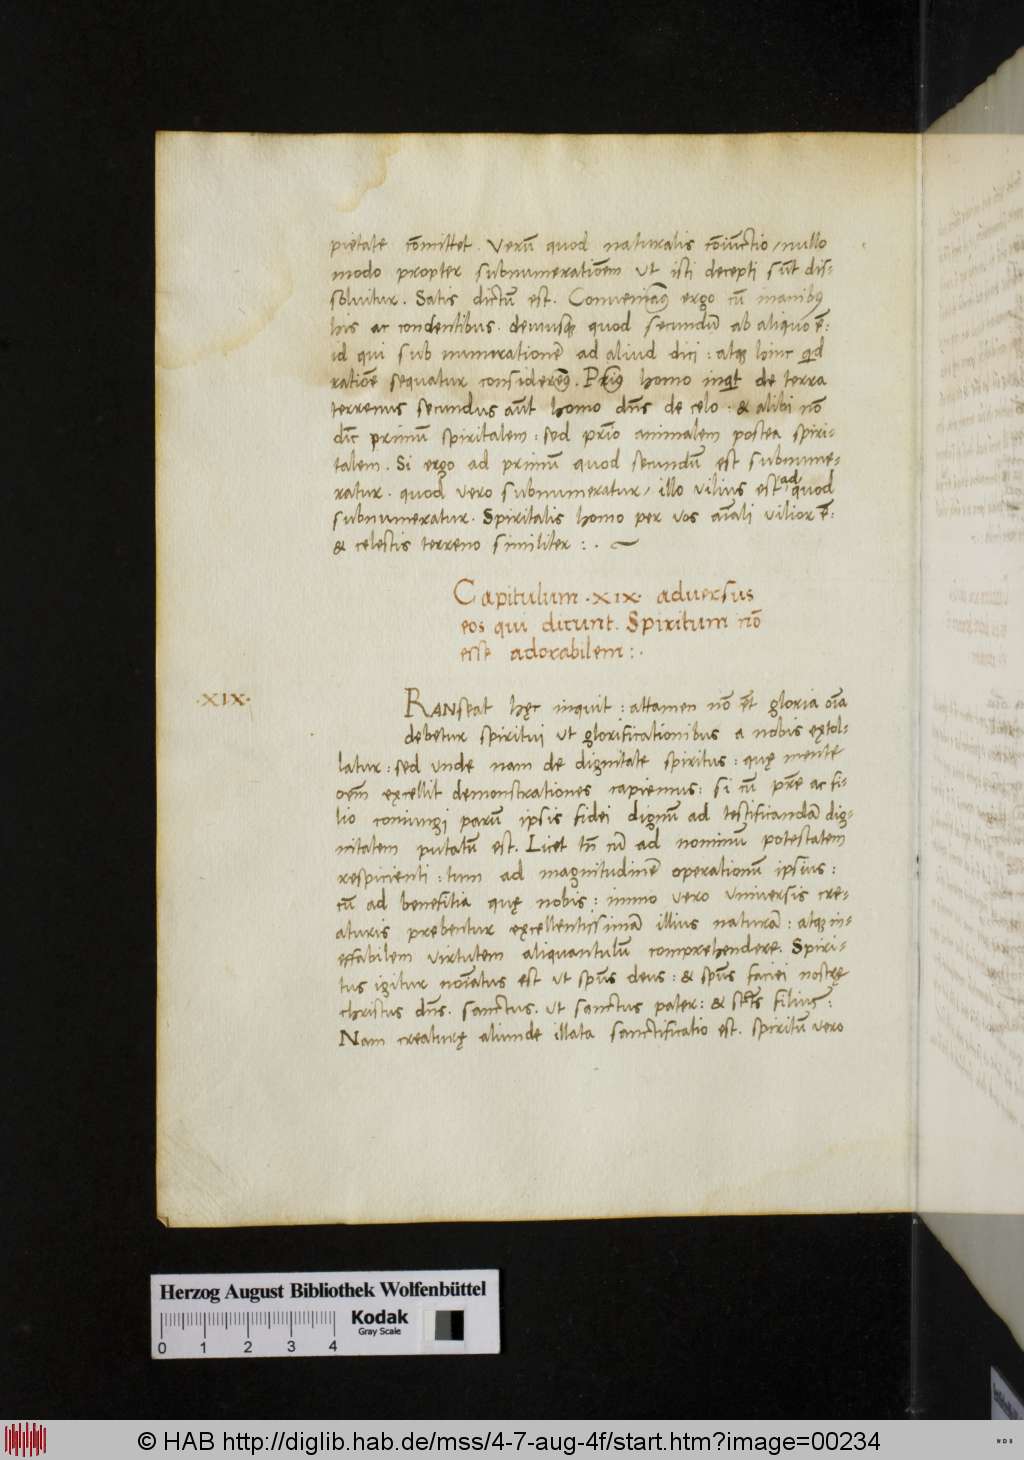 pietate cōmittet. Verū quod naturalis cōiūctio/nullo
modo propter subnumeratiōem ut isti decepti sūt dis-
soluitur. Satis dictū est. ergo cū inanibꝰ
his ac condentibus. quod secundū ab aliquo ē:
id qui sub numerationē ad aliud dici: atqꝫ hinc
ratiōē sequatur considerēꝰ. Priꝰ homo inqͥt de terra
terrenus secundus aūt homo dn̄s de celo. & alibi nō
primū spiritalem: sed prīo animalem postea spiri-
talem. Si ergo ad primū quod secundū est subnume-
ratur. quod vero subnumeratur/ illo vilius est ad quod
subnumeratur. Spiritalis homo per vos aīali vilior ē:
& celestis terreno similiter:.
Capitulum .XIX. aduersus
eos qui dicunt. Spiritum nō
esse adorabilem:.
.XIX.
RANseat hęc inquit: attamen nō ēt gloria oīa
debetur spiritui ut glorificationibus a nobis eẋtol-
latur: sed unde nam de dignitate spiritus: quę mente
oēm eẋcellit demonstrationes capiemus: si cū pr̄e ac fi-
lio coniungi parū ipsis fidei dignū ad testificandā dig-
nitatem putatū est. Licet tn̄ cū ad nominū potestatem
respicienti: tum ad magnitudinē operationū ipsius:
cū ad benefitia quę nobis: immo vero universis cre-
aturis prebentur eẋcellentissimā illius naturā: atqꝫ in-
effabilem virtutem aliquantulū comprehendere. Spiri-
tus igitur noīatus est ut spūs deus: & spūs faciei nostrę
christus dn̄s. sanctus. ut sanctus pater: & sct̄s filius:
Nam creaturę aliunde illata sanctificatio est. spiritū vero
Herzog August Bibliothek Wolfenbüttel
0 1 2 3 4
Kodak
Gray Scale
© HAB http://diglib.hab.de/mss/4-7-aug-4f/start.htm?image=00234